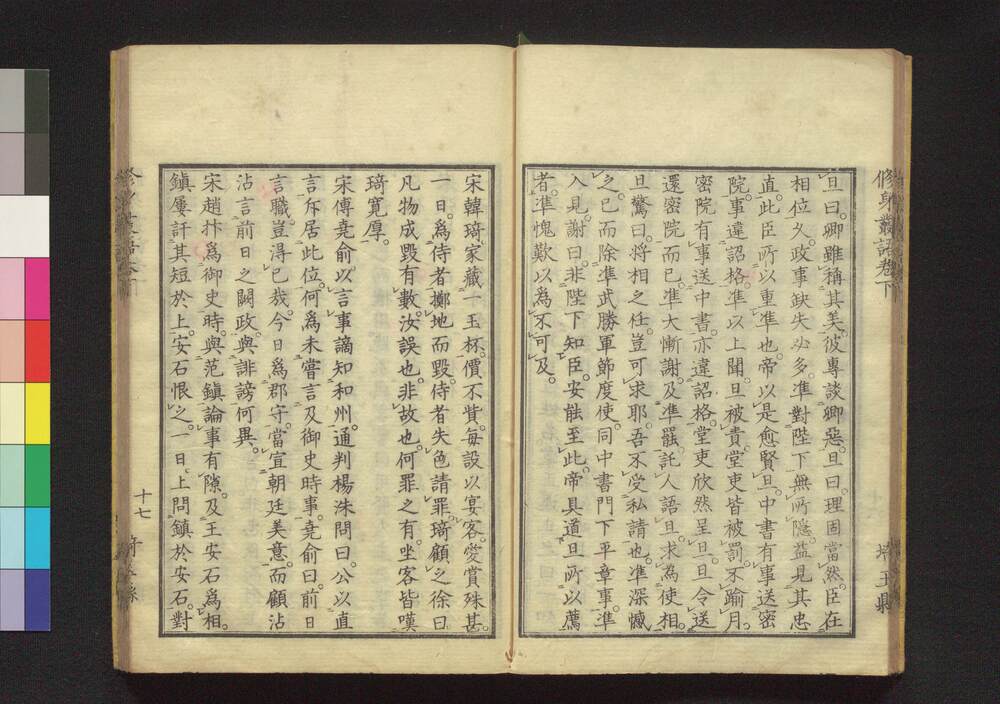 修身叢語卷下
埼玉縣
旦曰。卿雖稱其美。彼專談卿惡。旦曰。理固當然。臣在
相位久。政事缺失必多。準對陛下無所隱。益見其忠
直。此臣所以重準也。帝以是愈賢旦。中書有事送密
院。事違詔格。準以上聞。旦被責。堂吏皆被罰。不踰月。
密院有事送中書。亦違詔格。堂吏欣然呈旦。旦令送
還密院而已。準大慚謝。及準罷。託人語旦。求為使相。
旦驚曰。將相之任。豈可求耶。吾不受私請也。準深憾
之。已而除準武勝軍節度使。同中書門下平章事。準
入見。謝曰。非陛下知臣。安能至此。帝具道旦所以薦
者。準愧歎以為不可及。
宋韓琦家藏一玉杯。價不貲。每設以宴客。愛賞殊甚。
一日。為侍者擲地而毀。侍者失色請罪。琦顧之徐曰
凡物成毀有數。汝誤也。非故也。何罪之有。坐客皆嘆
琦寬厚。
宋傅堯俞以言事謫知和州。通判楊洙問曰。公以直
言斥居此位。何為未嘗言及御史時事。堯俞曰。前日
言職。豈得已哉。今日為郡守。當宣朝廷美意。而顧沾
沾言前日之闕政。與誹謗何異。
宋趙抃為御史時。與范鎮論事有隙。及王安石為相。
鎮屢訐其短於上。安石恨之。一日。上問鎮於安石。對
十七